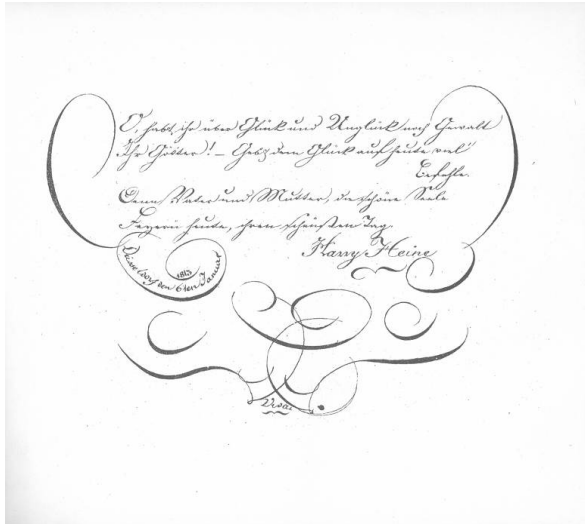 O, habt ihr über Glück und Unglück noch Gewalt
Ihr Götter! – Gebt dem Glück auf heute viel
Befehle.
Denn Vater und Mutter, die schöne Seele
Feyern heute, ihren schönsten Tag.
Harry Heine
Düsseldorf den 6ten Januar
1813
Vivat